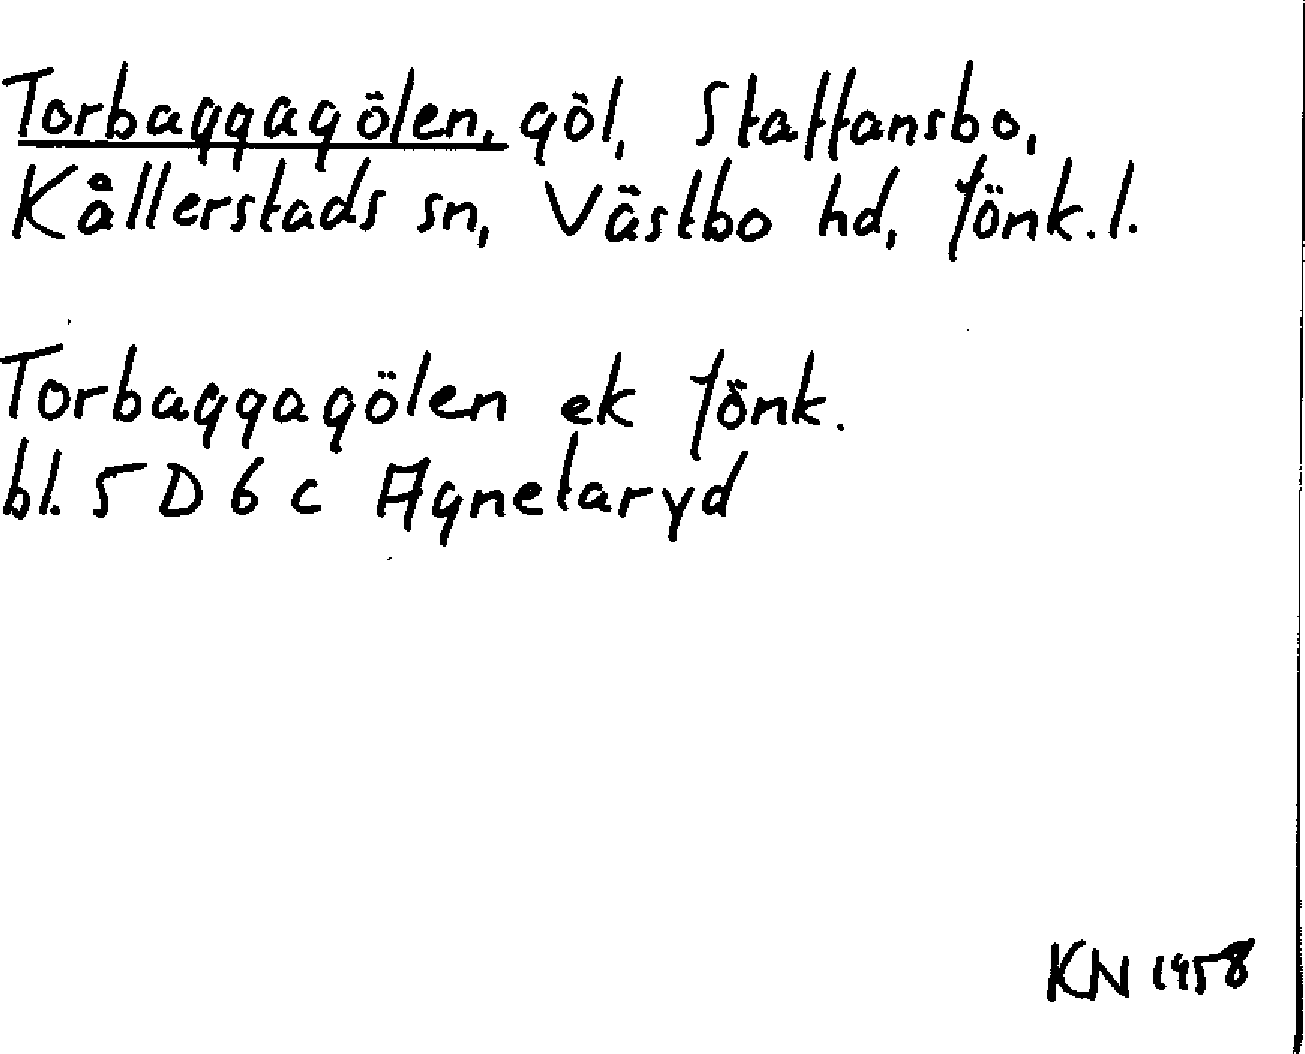 Torbaggagölen, göl, Staffansbo,
Kållerstads sn, Västbo hd, Jönk.l.
Torbaggagölen ek Jönk.
bl. 5 D 6 c Agnetaryd
KN 1958